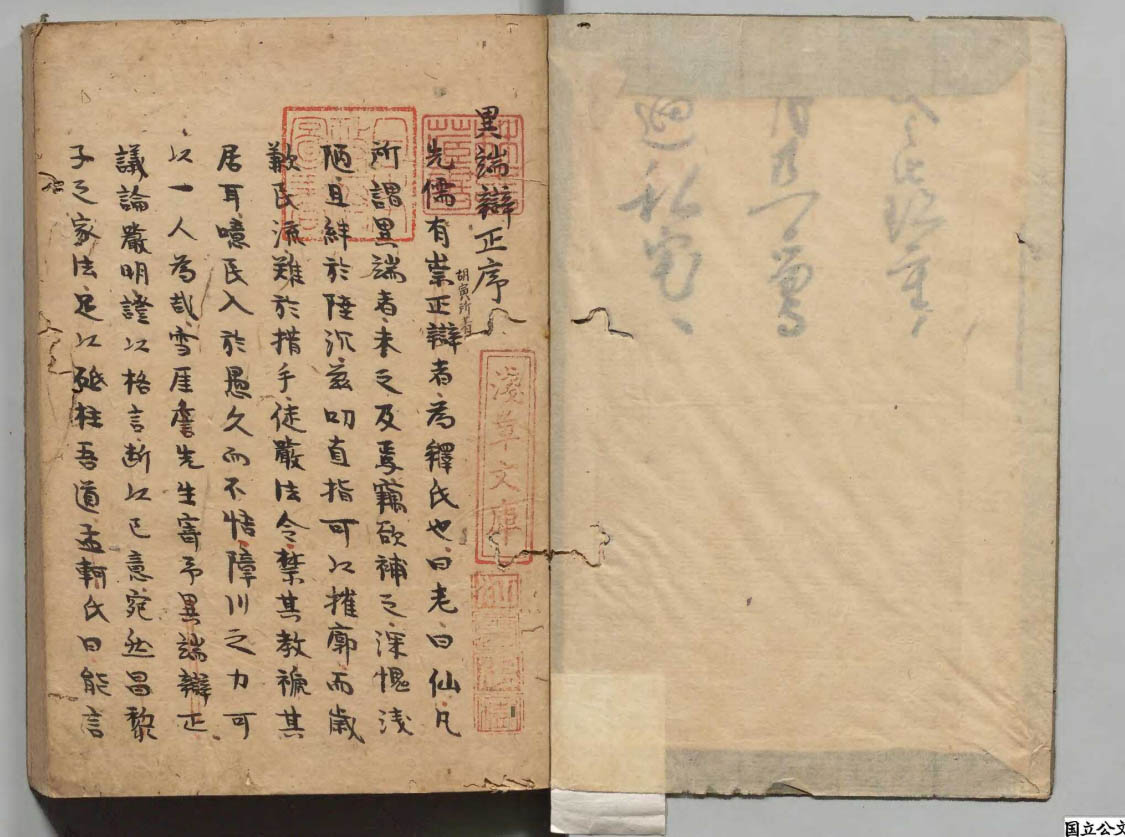 異端辯正序
先儒有崇正辯者胡寅所著為釋氏也曰老曰仙凡
所謂異端者未之及焉竊欲補之深愧淺
陋且絆於陸沉茲叨直指可以摧廓而歲
歉民流難於措手徒嚴法令禁其教褫其
居耳噫民入於愚久而不悟障川之力可
以一人為哉雪厓詹先生寄予異端辯正
議論嚴明證以格言斷以已意宛然昌黎
子之家法足以砥柱吾道孟軻氏曰能言
淺草文庫
国立公文